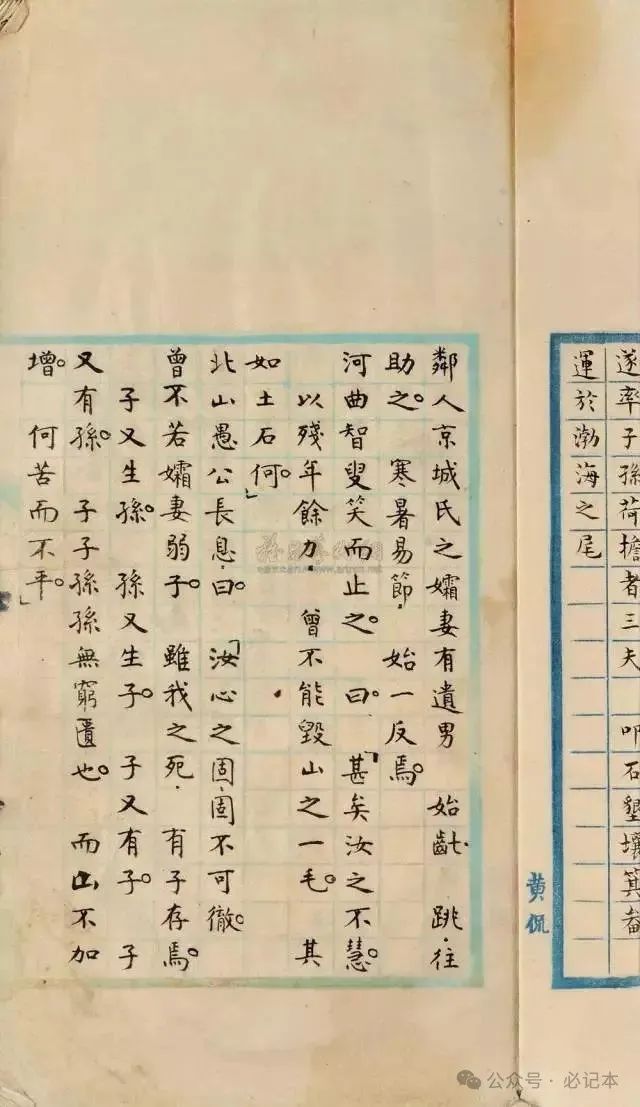 遂率子孫荷擔者三夫 叩石墾壤箕畚
運於渤海之尾
黄侃
鄰人京城氏之孀妻有遺男 始齔 跳·往
助之。 寒暑易節· 始一反焉。
河曲智叟笑而止之。曰。「甚矣汝之不慧。
以殘年餘力· 曾不能毀山之一毛。 其
如土石何。」
北山愚公長息·曰。 「汝心之固·固不可徹。
曾不若孀妻弱子。 雖我之死· 有子存焉。
子又生孫。 孫又生子。 子又有子。 子
又有孫。 子子孫孫無窮匱也。 而山不加
增。 何苦而不平。」
公众号·必记本